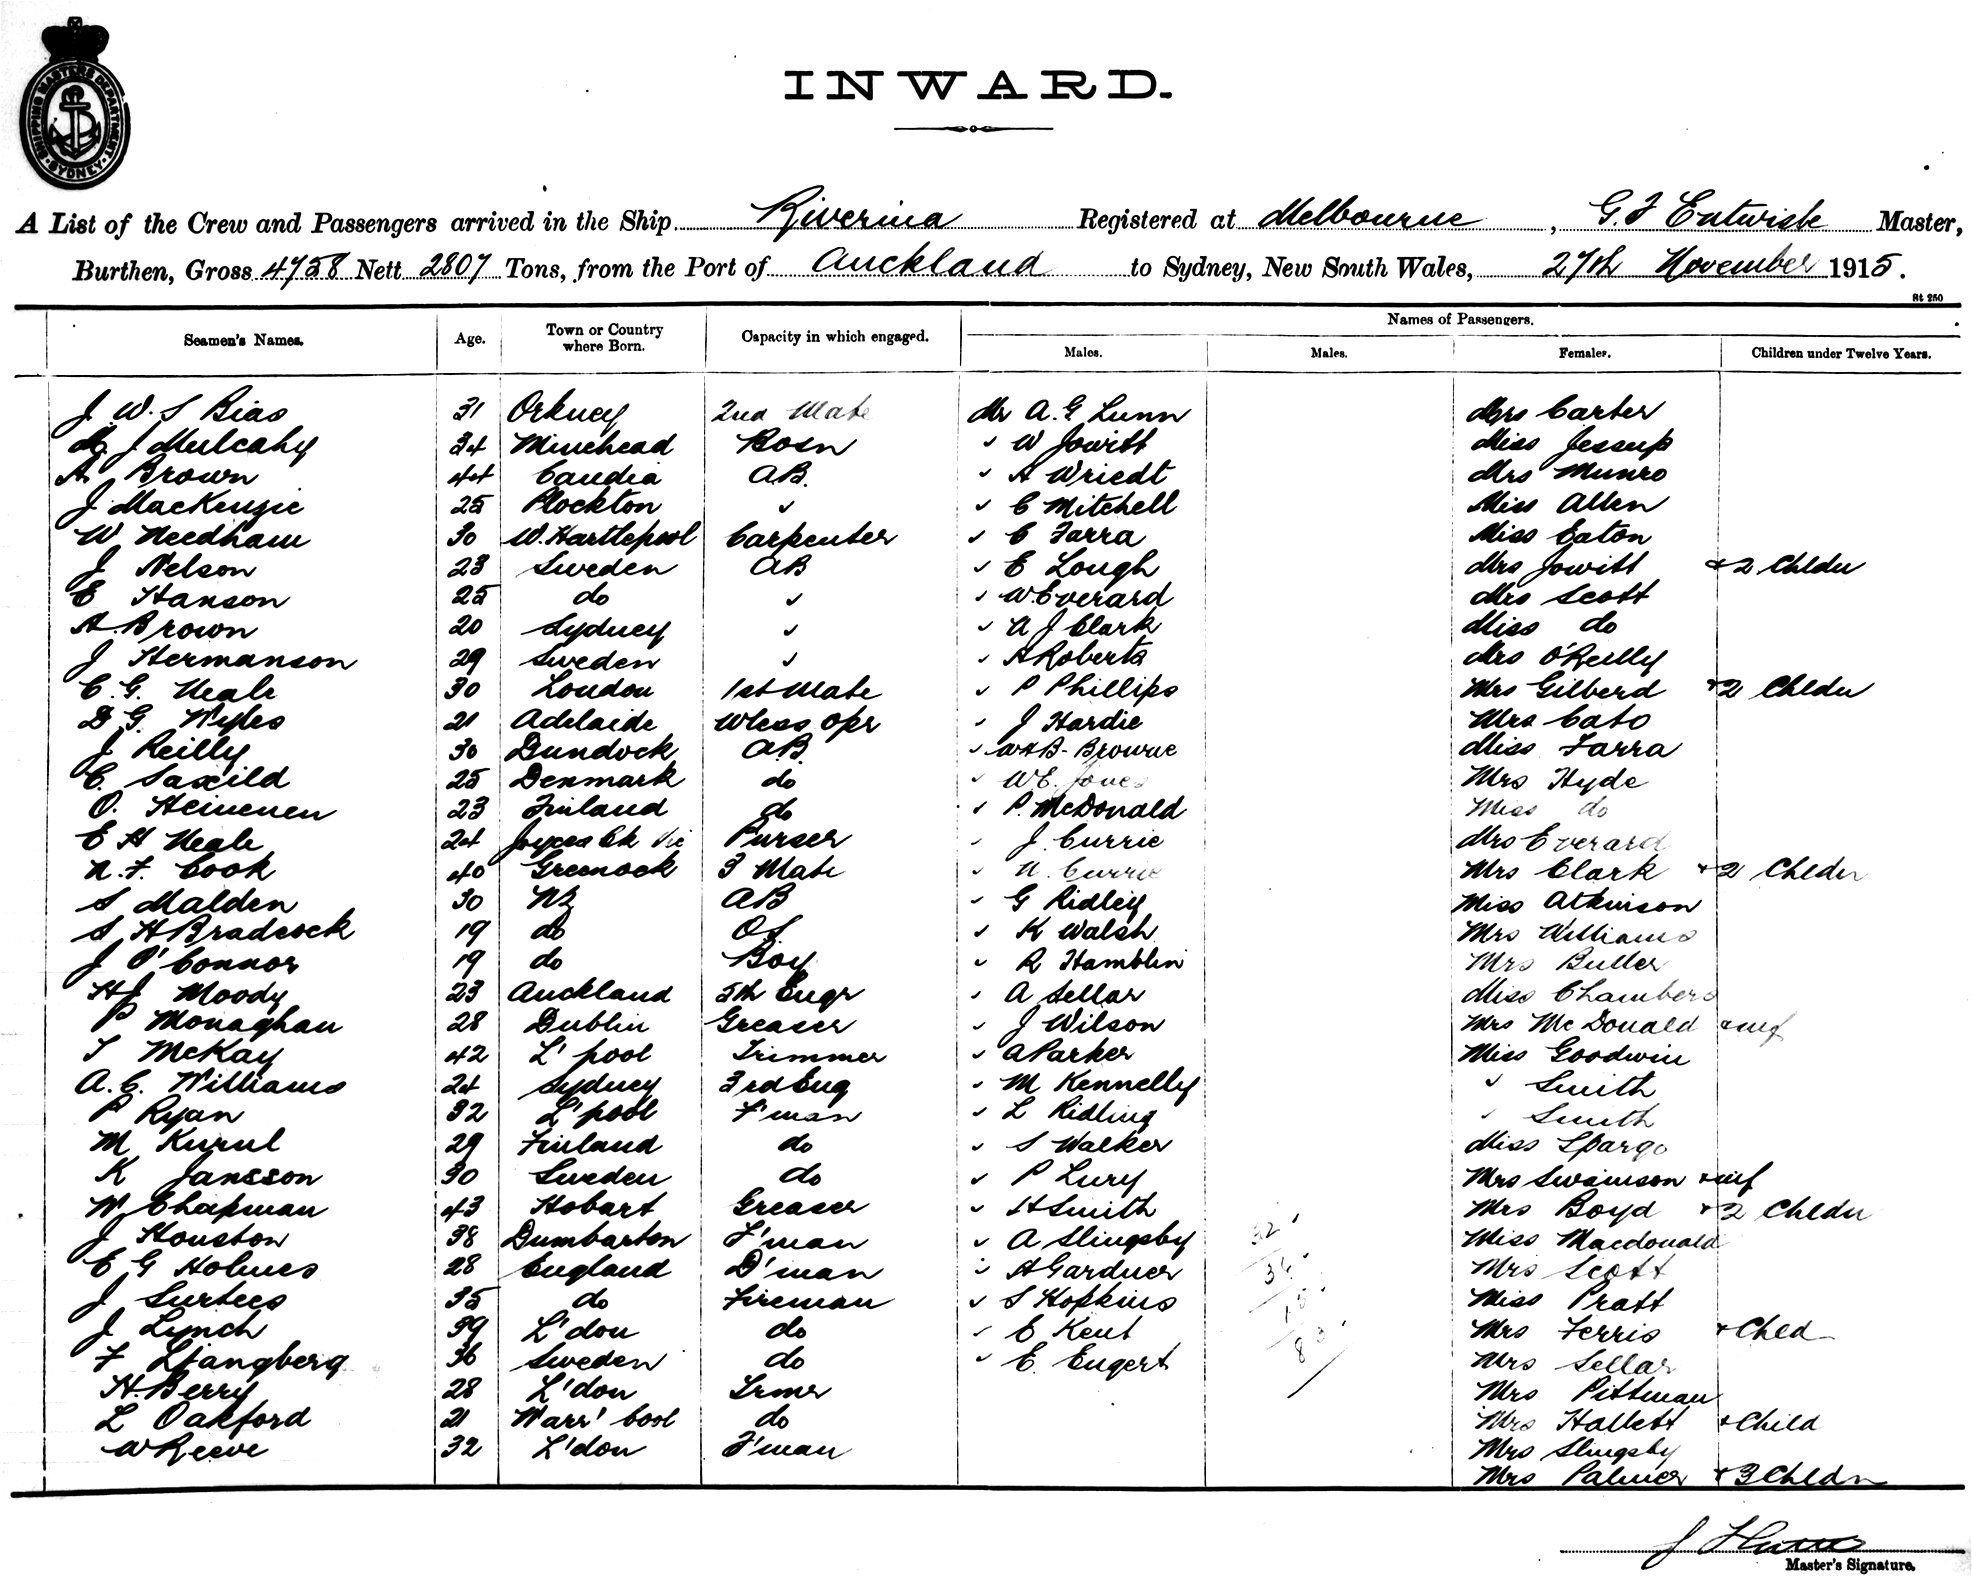 SHIPPING MASTERS DEPARTMENT SYDNEY
INWARD.
A List of the Crew and Passengers arrived in the Ship Riverina Registered at Melbourne, G. F Entwisle Master,
Burthen, Gross 4758 Nett 2807 Tons, from the Port of Auckland to Sydney, New South Wales, 27th November 1915.
St 250
Seamen's Names. Age. Town or Country where Born. Capacity in which engaged. Names of Passengers.
Males. Males. Females. Children under Twelve Years.
J. W. S Bias 31 Orkney 2nd Mate Mr A. G Lunn Mrs Carter
M. J Mulcahy 34 Minehead Bosn " W Jowitt Miss Jessup
A Brown 44 Candia AB. " A Wriedt Mrs Munro
J MacKenzie 25 Plockton " " C Mitchell Miss Allen
W Needham 30 W. Hartlepool Carpenter " C Farra Miss Eaton
J Nelson 23 Sweden AB " E Lough Mrs Jowitt + 2 Chldn
E Hanson 25 do " " W. Everard Mrs Scott
A. Brown 20 Sydney " " A J Clark Miss do
J Hermanson 29 Sweden " " A Roberts Mrs O'Reilly
C. G. Neale 30 London 1st Mate " P Phillips Mrs Gilberd + 2 Chldn
D G. Wyles 21 Adelaide Wless Opr " J Hardie Mrs Cato
J Reilly 30 Dundock AB. " W H B. Browne Miss Farra
C. Saxild 25 Denmark do " W E. Jones Mrs Hyde
O. Heinenen 23 Finland do " P. McDonald Miss do
E H Neale 24 Joyces Ck Vic Purser " J. Currie Mrs Everard
N. F. Cook 40 Greenock 3 Mate " N. Currie Mrs Clark + 2 Chldn
S Malden 30 NZ AB " G Ridley Miss Atkinson
S H Bradcock 19 do OS " K Walsh Mrs Williams
J O'Connor 19 do Boy " R Hamblin Mrs Butler
H J Moody 23 Auckland 5th Engr " A Sellar Miss Chambers
P Monaghan 28 Dublin Greaser " J Wilson Mrs McDonald + inf
T McKay 42 L'pool Trimmer " A Parker Miss Goodwin
A. C. Williams 24 Sydney 3rd Eng " M Kennelly " Smith
P Ryan 32 L'pool F'man " L Ridling " Smith
M Kurul 29 Finland do " S Walker Miss Spargo
K Jansson 30 Sweden do " P Lury Mrs Swainson + inf
W. Chapman 43 Hobart Greaser " H Smith Mrs Boyd + 2 Chldn
J Houston 38 Dumbarton F'man " A Slingsby 32 Miss Macdonald
E G Holmes 28 England D'man " A Gardner Mrs Scott
J Surtees 35 do Fireman " S Hopkins Miss Pratt
J Lynch 39 L'don do " E Kent Mrs Ferris + Chld
F Ljangberg 36 Sweden do " E. Eugert Mrs Sellar
H. Berry 28 L'don Trmr Mrs Pittman
L Oakford 21 Warr'bool do Mrs Hallett + Child
W Reeve 32 L'don F'man Mrs Slingsby
Mrs Palmer + 3 Chldn
Master's Signature.